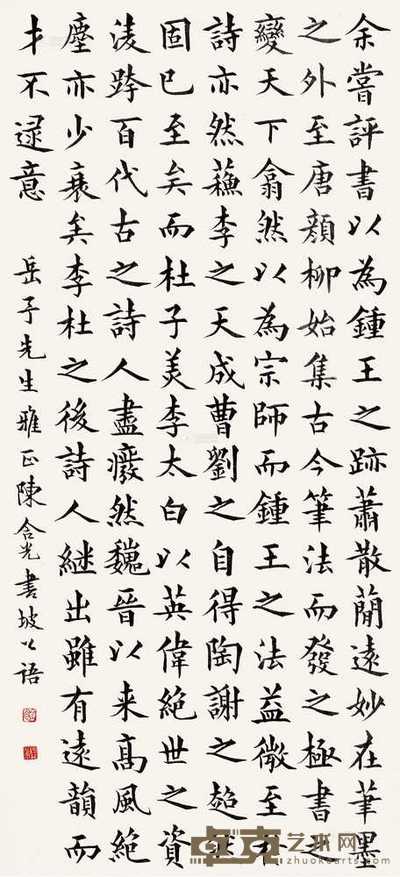 余嘗評書以為鍾王之跡蕭散簡遠妙在筆墨
之外至唐顏柳始集古今筆法而發之極書之
變天下翕然以為宗師而鍾王之法益微至於
詩亦然蘓李之天成曹劉之自得陶謝之超然
固已至矣而杜子美李太白以英偉絕世之資
淩跨百代古之詩人盡癈然魏晉以来高風絕
塵亦少衰矣李杜之後詩人継出雖有遠韻而
才不逮意
岳子先生雅正陳含光書坡公語
卓克艺术网
www.zhuokearts.com